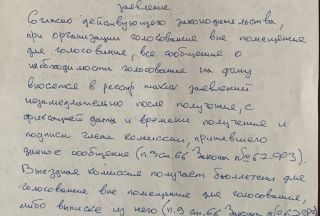 заявление
Согласно действующего законодательства,
при организации голосование вне помещение
для голосование, все сообщение о
необходимости голосование на дому
вносятся в реестр таких заявлений
незамедлительно после получение, с
фиксацией даты и времени получение и
подписи члена комиссии, принявшего
данное сообщение (п.5 ст.66 Закона №67-ФЗ).
Выездная комиссия получает бюллетени для
голосование вне помещение для голосование,
либо выписке из него (п.9 ст.66 Закона №67-ФЗ)